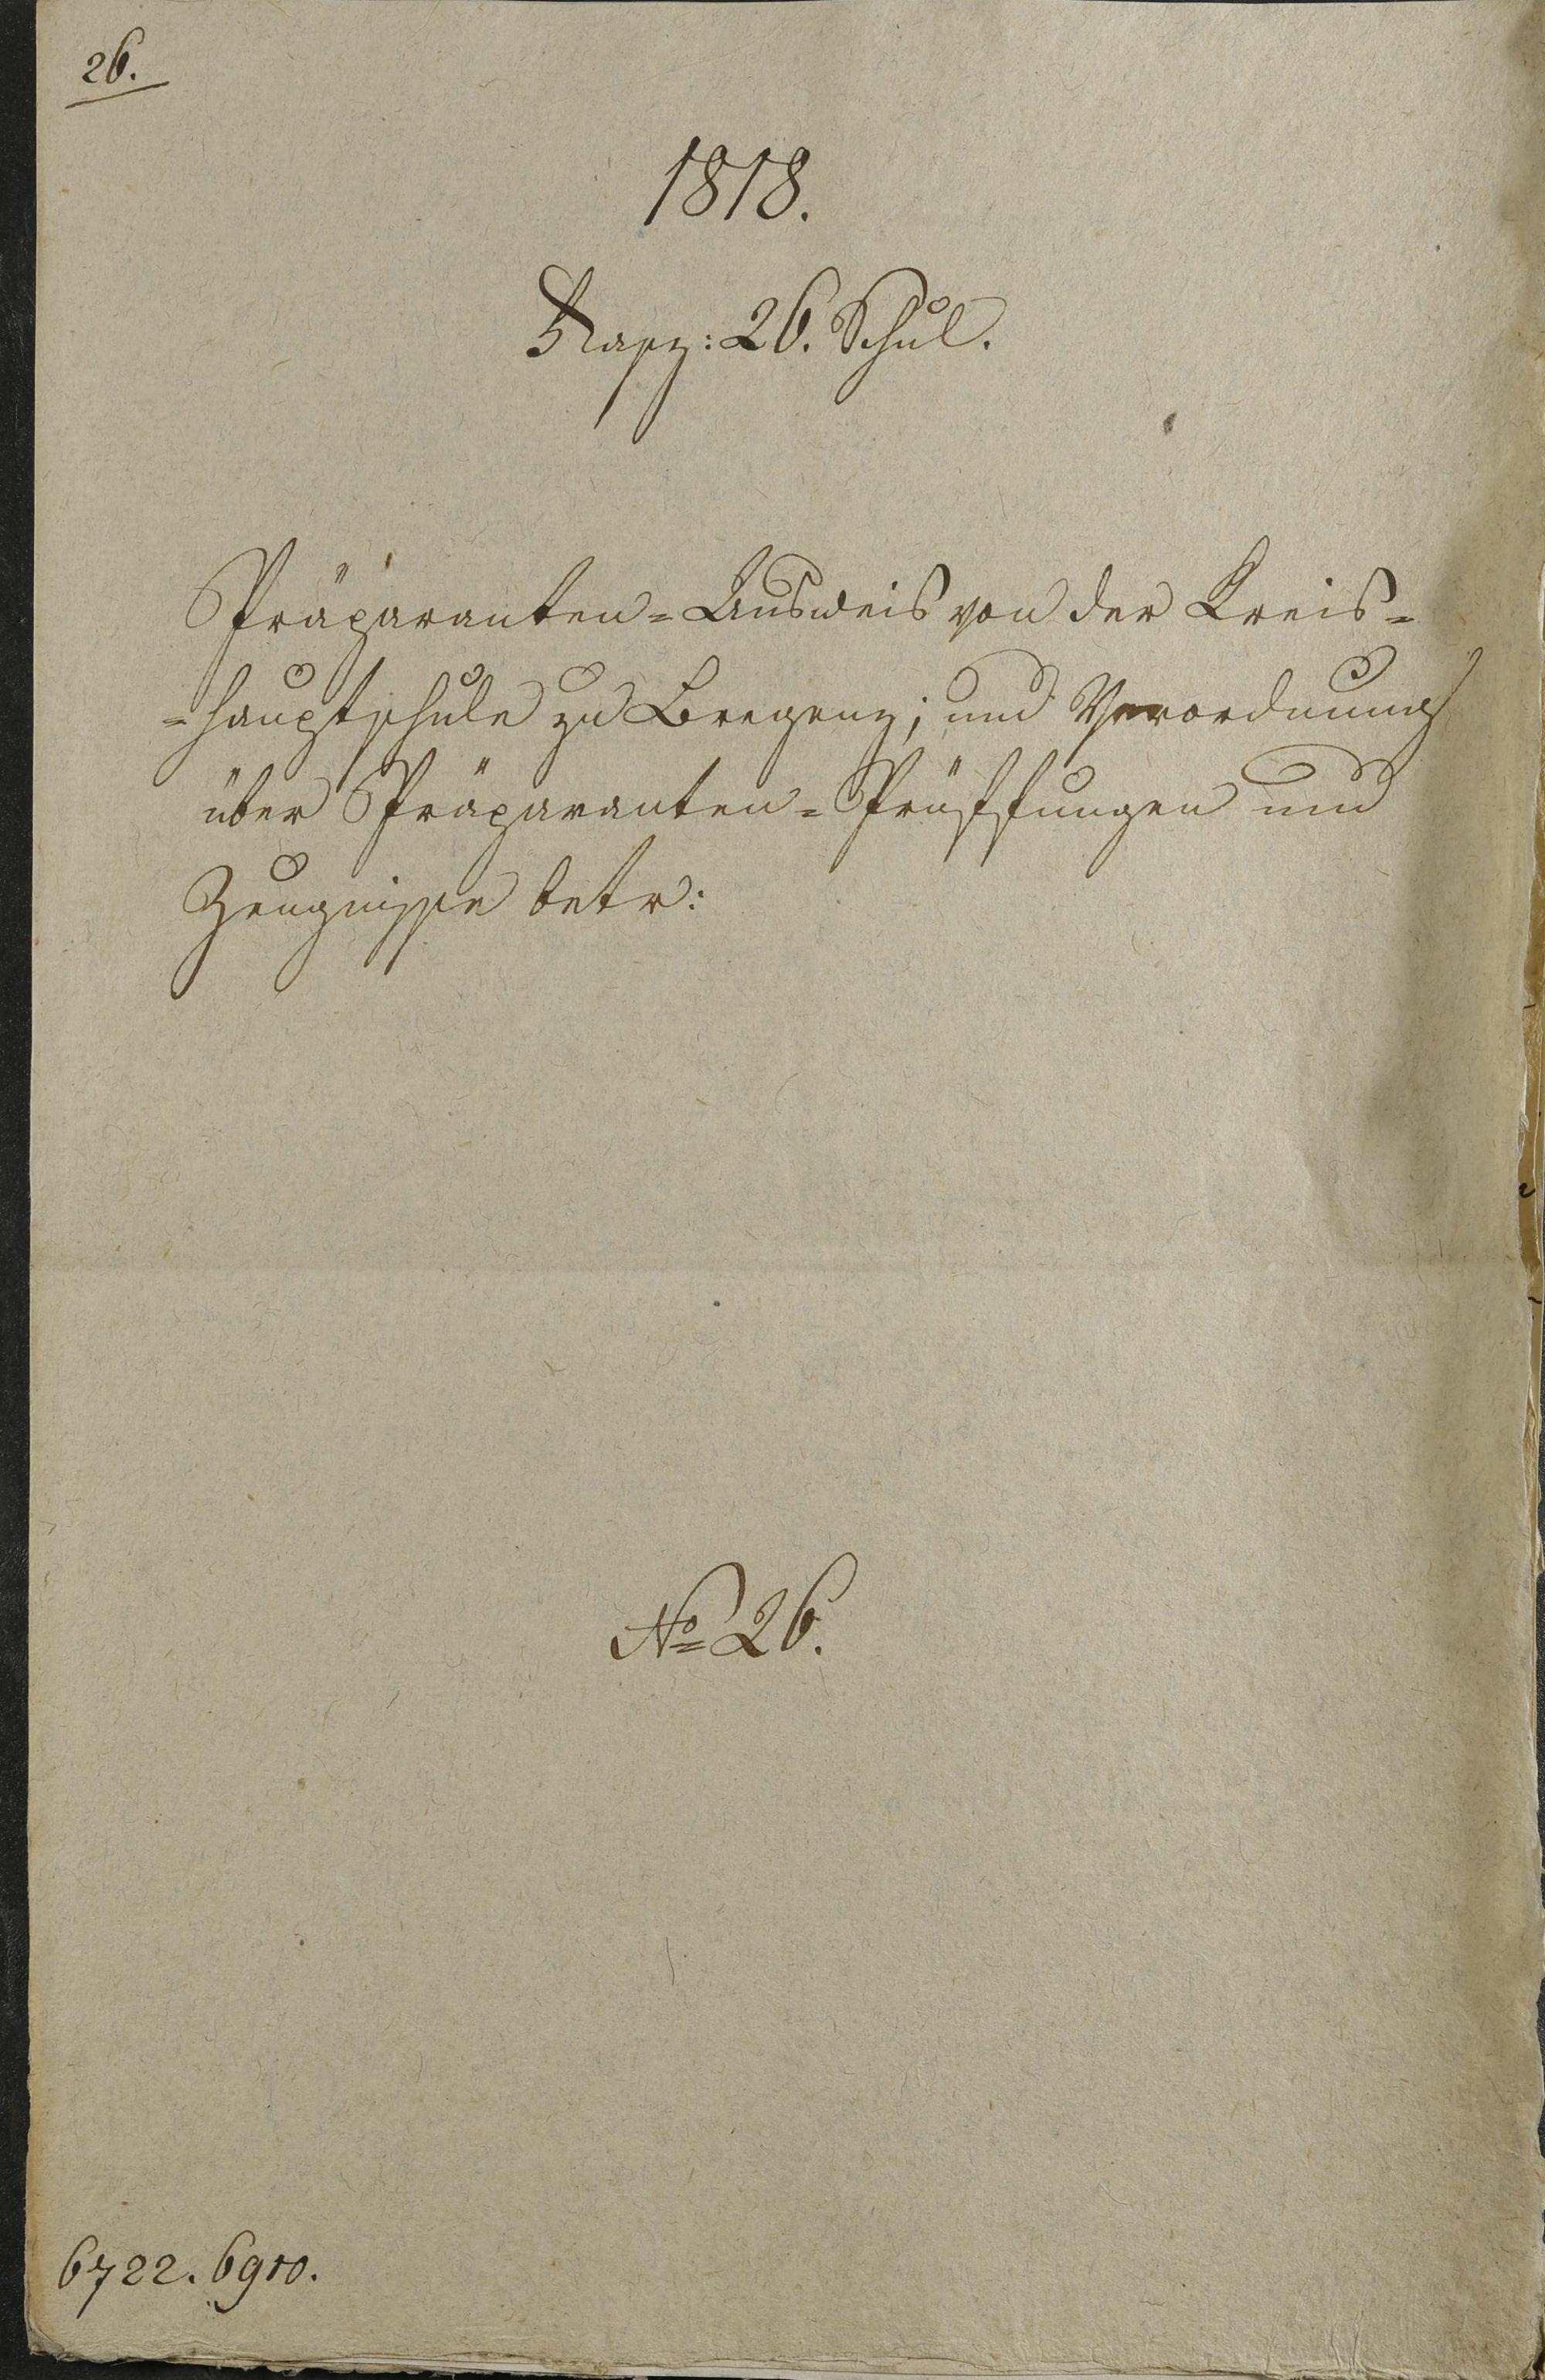 26.
1818.
Fasz: 26. Schul.
Präparanten-Ausweis von der Kreis-
-hauptschule zu Bregenz; und Verordnung
über Präparanten-Prüffungen und
Zeugnisse betr:
No 26.
6722. 6910.